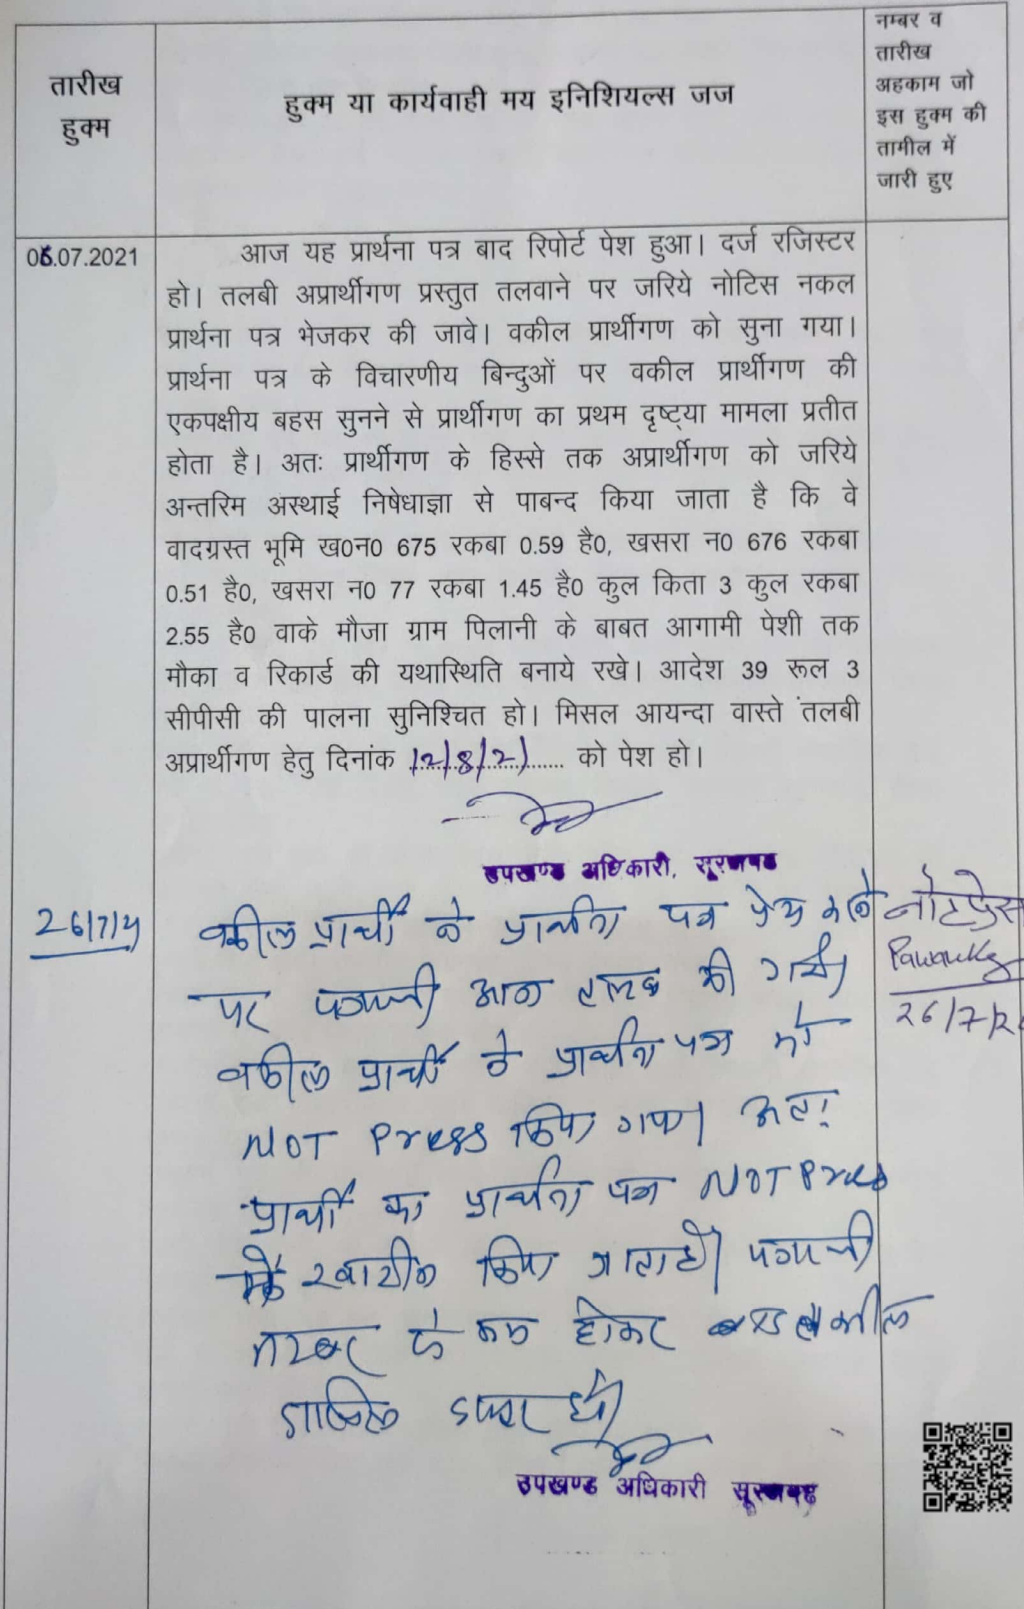 तारीख
हुक्म
हुक्म या कार्यवाही मय इनिशियल्स जज
नम्बर व
तारीख
अहकाम जो
इस हुक्म की
तामील में
जारी हुए
06.07.2021
आज यह प्रार्थना पत्र बाद रिपोर्ट पेश हुआ। दर्ज रजिस्टर
हो। तलबी अप्रार्थीगण प्रस्तुत तलवाने पर जरिये नोटिस नकल
प्रार्थना पत्र भेजकर की जावे। वकील प्रार्थीगण को सुना गया।
प्रार्थना पत्र के विचारणीय बिन्दुओं पर वकील प्रार्थीगण की
एकपक्षीय बहस सुनने से प्रार्थीगण का प्रथम दृष्ट्या मामला प्रतीत
होता है। अतः प्रार्थीगण के हिस्से तक अप्रार्थीगण को जरिये
अन्तरिम अस्थाई निषेधाज्ञा से पाबन्द किया जाता है कि वे
वादग्रस्त भूमि ख0न0 675 रकबा 0.59 है0, खसरा न0 676 रकबा
0.51 है0, खसरा न0 77 रकबा 1.45 है0 कुल किता 3 कुल रकबा
2.55 है0 वाके मौजा ग्राम पिलानी के बाबत आगामी पेशी तक
मौका व रिकार्ड की यथास्थिति बनाये रखे। आदेश 39 रूल 3
सीपीसी की पालना सुनिश्चित हो। मिसल आयन्दा वास्ते तलबी
अप्रार्थीगण हेतु दिनांक 12/8/21 को पेश हो।
उपखण्ड अधिकारी, सूरजगढ
26/7/21
वकील प्रार्थी के प्रार्थना पत्र पेश करने
पर पत्रावली आज तलब की गयी।
वकील प्रार्थी ने प्रार्थना पत्र को
NOT Press किया गया। अतः
प्रार्थी का प्रार्थना पत्र NOT Press
में खारीज किया जाता है। पत्रावली
नम्बर से कम होकर
दाखिल दफ्तर हो।
नोटप्रेस
26/7/21
उपखण्ड अधिकारी सूरजगढ